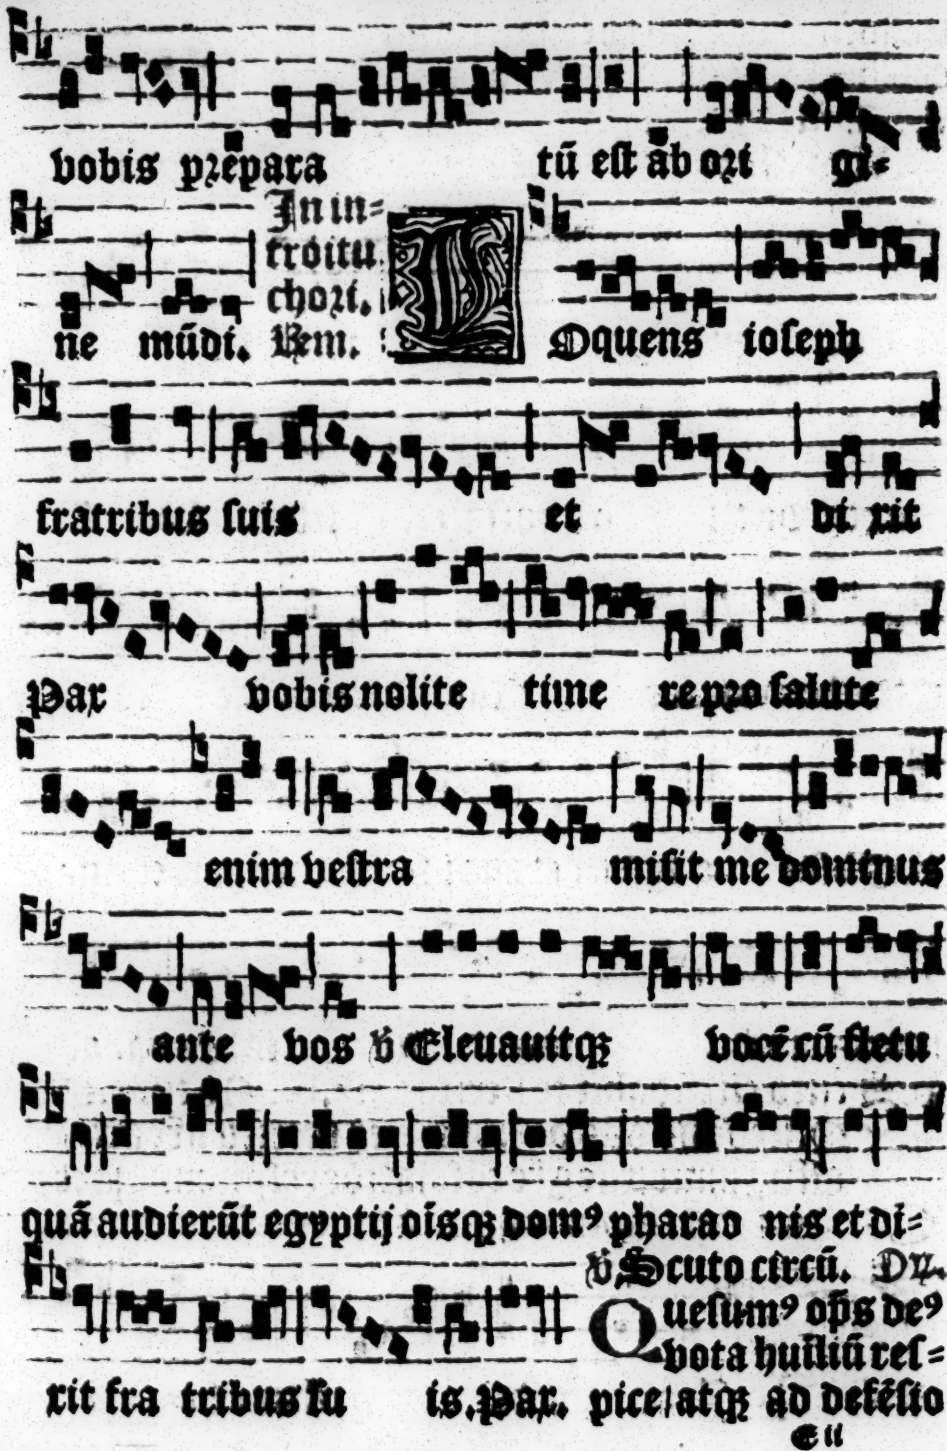 vobis prepara tū est ab ori gi=
ne mūdi.
In in=
troitu
chori.
Rem.
LOquens ioseph
fratribus suis et di xit
Pax vobis nolite time re pro salute
enim vestra misit me dominus
ante vos v̄ Eleuauitqꝫ vocē cū fletu
quā audierūt egyptij oīsqꝫ domꝰ pharao nis et di=
xit fra tribus su is. Pax.
v̄ Scuto circū. Oꝝ.
Quesumꝰ op̄s deꝰ
vota huīliū res=
pice/atqꝫ ad defēsio
E ii